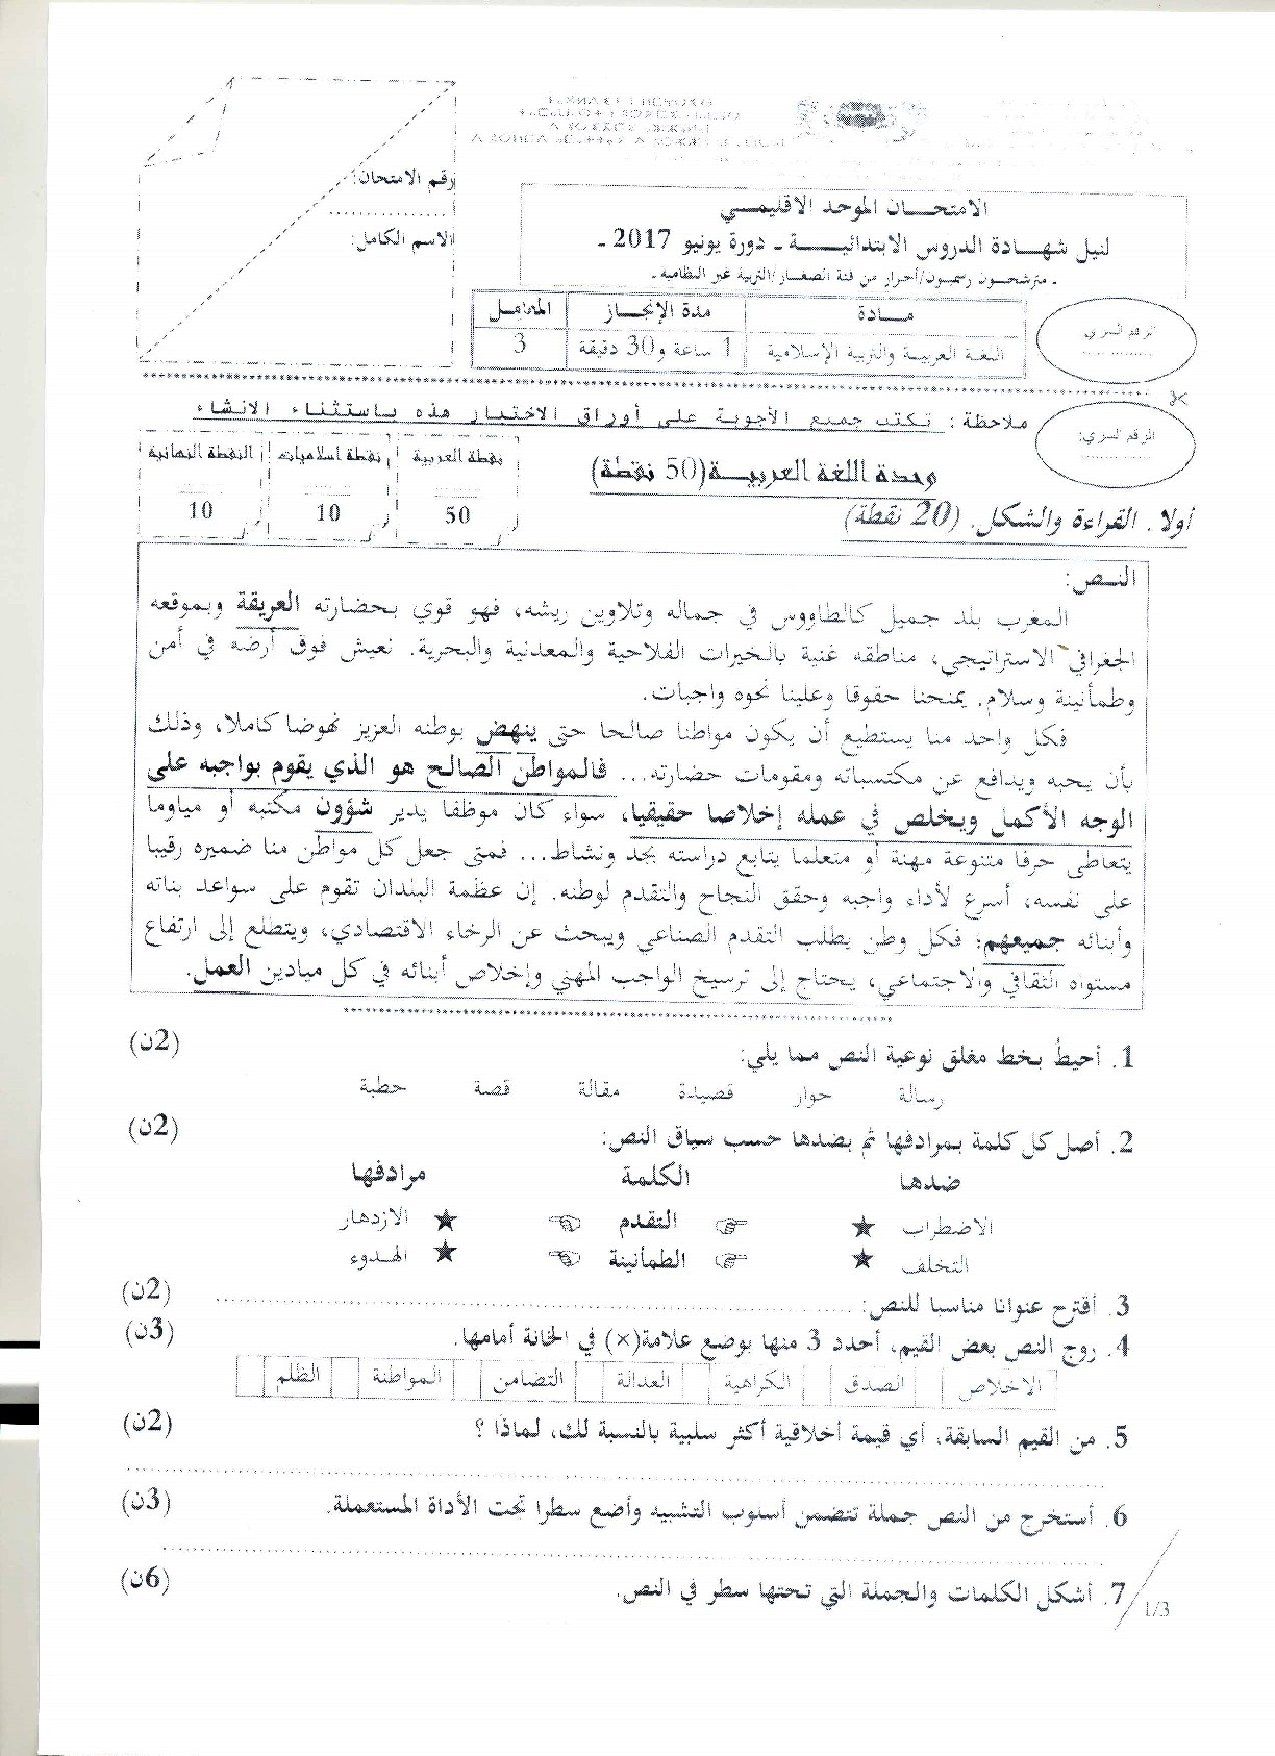 الامتحـــان الموحد الاقليمـــي
لنيل شهـــادة الدروس الابتدائيـــــة ـ دورة يونيو 2017 ـ
ـ مترشحـون رسميون/أحرار من فئة الصغار/التربية غير النظامية ـ
رقم الامتحان:
الاسم الكامل:
مـــادة مدة الإنجـــاز المعامـل
اللغة العربيـة والتربية الإسلامية 1 ساعة و30 دقيقة 3
الرقم السري
ملاحظة : تكتب جميع الأجوبة على أوراق الاختبار هذه باستثناء الانشاء
الرقم السري:
نقطة العربية نقطة اسلاميات النقطة النهائية
50 10 10
وحدة اللغة العربيـــة(50 نقطة)
أولا. القراءة والشكل. (20 نقطة)
النـص:
المغرب بلد جميل كالطاووس في جماله وتلاوين ريشه، فهو قوي بحضارته العريقة وبموقعه
الجغرافي الاستراتيجي، مناطقه غنية بالخيرات الفلاحية والمعدنية والبحرية. نعيش فوق أرضه في أمن
وطمأنينة وسلام. يمنحنا حقوقا وعلينا نحوه واجبات.
فكل واحد منا يستطيع أن يكون مواطنا صالحا حتى ينهض بوطنه العزيز نهوضا كاملا، وذلك
بأن يحبه ويدافع عن مكتسباته ومقومات حضارته... فالمواطن الصالح هو الذي يقوم بواجبه على
الوجه الأكمل ويخلص في عمله إخلاصا حقيقيا، سواء كان موظفا يدير شؤون مكتبه أو مياوما
يتعاطى حرفا متنوعة مهنة أو متعلما يتابع دراسته بجد ونشاط... فمتى جعل كل مواطن منا ضميره رقيبا
على نفسه، أسرع لأداء واجبه وحقق النجاح والتقدم لوطنه. إن عظمة البلدان تقوم على سواعد بناته
وأبنائه جميعهم: فكل وطن يطلب التقدم الصناعي ويبحث عن الرخاء الاقتصادي، ويتطلع إلى ارتفاع
مستواه الثقافي والاجتماعي، يحتاج إلى ترسيخ الواجب المهني وإخلاص أبنائه في كل ميادين العمل.
1. أحيطُ بخط مغلق نوعية النص مما يلي: (2ن)
رسالة حوار قصيدة مقالة قصة خطبة
2. أصل كل كلمة بمرادفها ثم بضدها حسب سياق النص: (2ن)
ضدها الكلمة مرادفها
الاضطراب ★ ☞ التقدم ☜ ★ الازدهار
التخلف ★ ☞ الطمأنينة ☜ ★ الهدوء
3. أقترح عنوانا مناسبا للنص: ........................ (2ن)
4. روج النص بعض القيم، أحدد 3 منها بوضع علامة(×) في الخانة أمامها. (3ن)
الاخلاص الصدق الكراهية العدالة التضامن المواطنة الظلم
5. من القيم السابقة، أي قيمة أخلاقية أكثر سلبية بالنسبة لك، لماذا ؟ (2ن)
6. أستخرج من النص جملة تتضمن أسلوب التشبيه وأضع سطرا تحت الأداة المستعملة. (3ن)
7. أشكل الكلمات والجملة التي تحتها سطر في النص. (6ن)
1/3